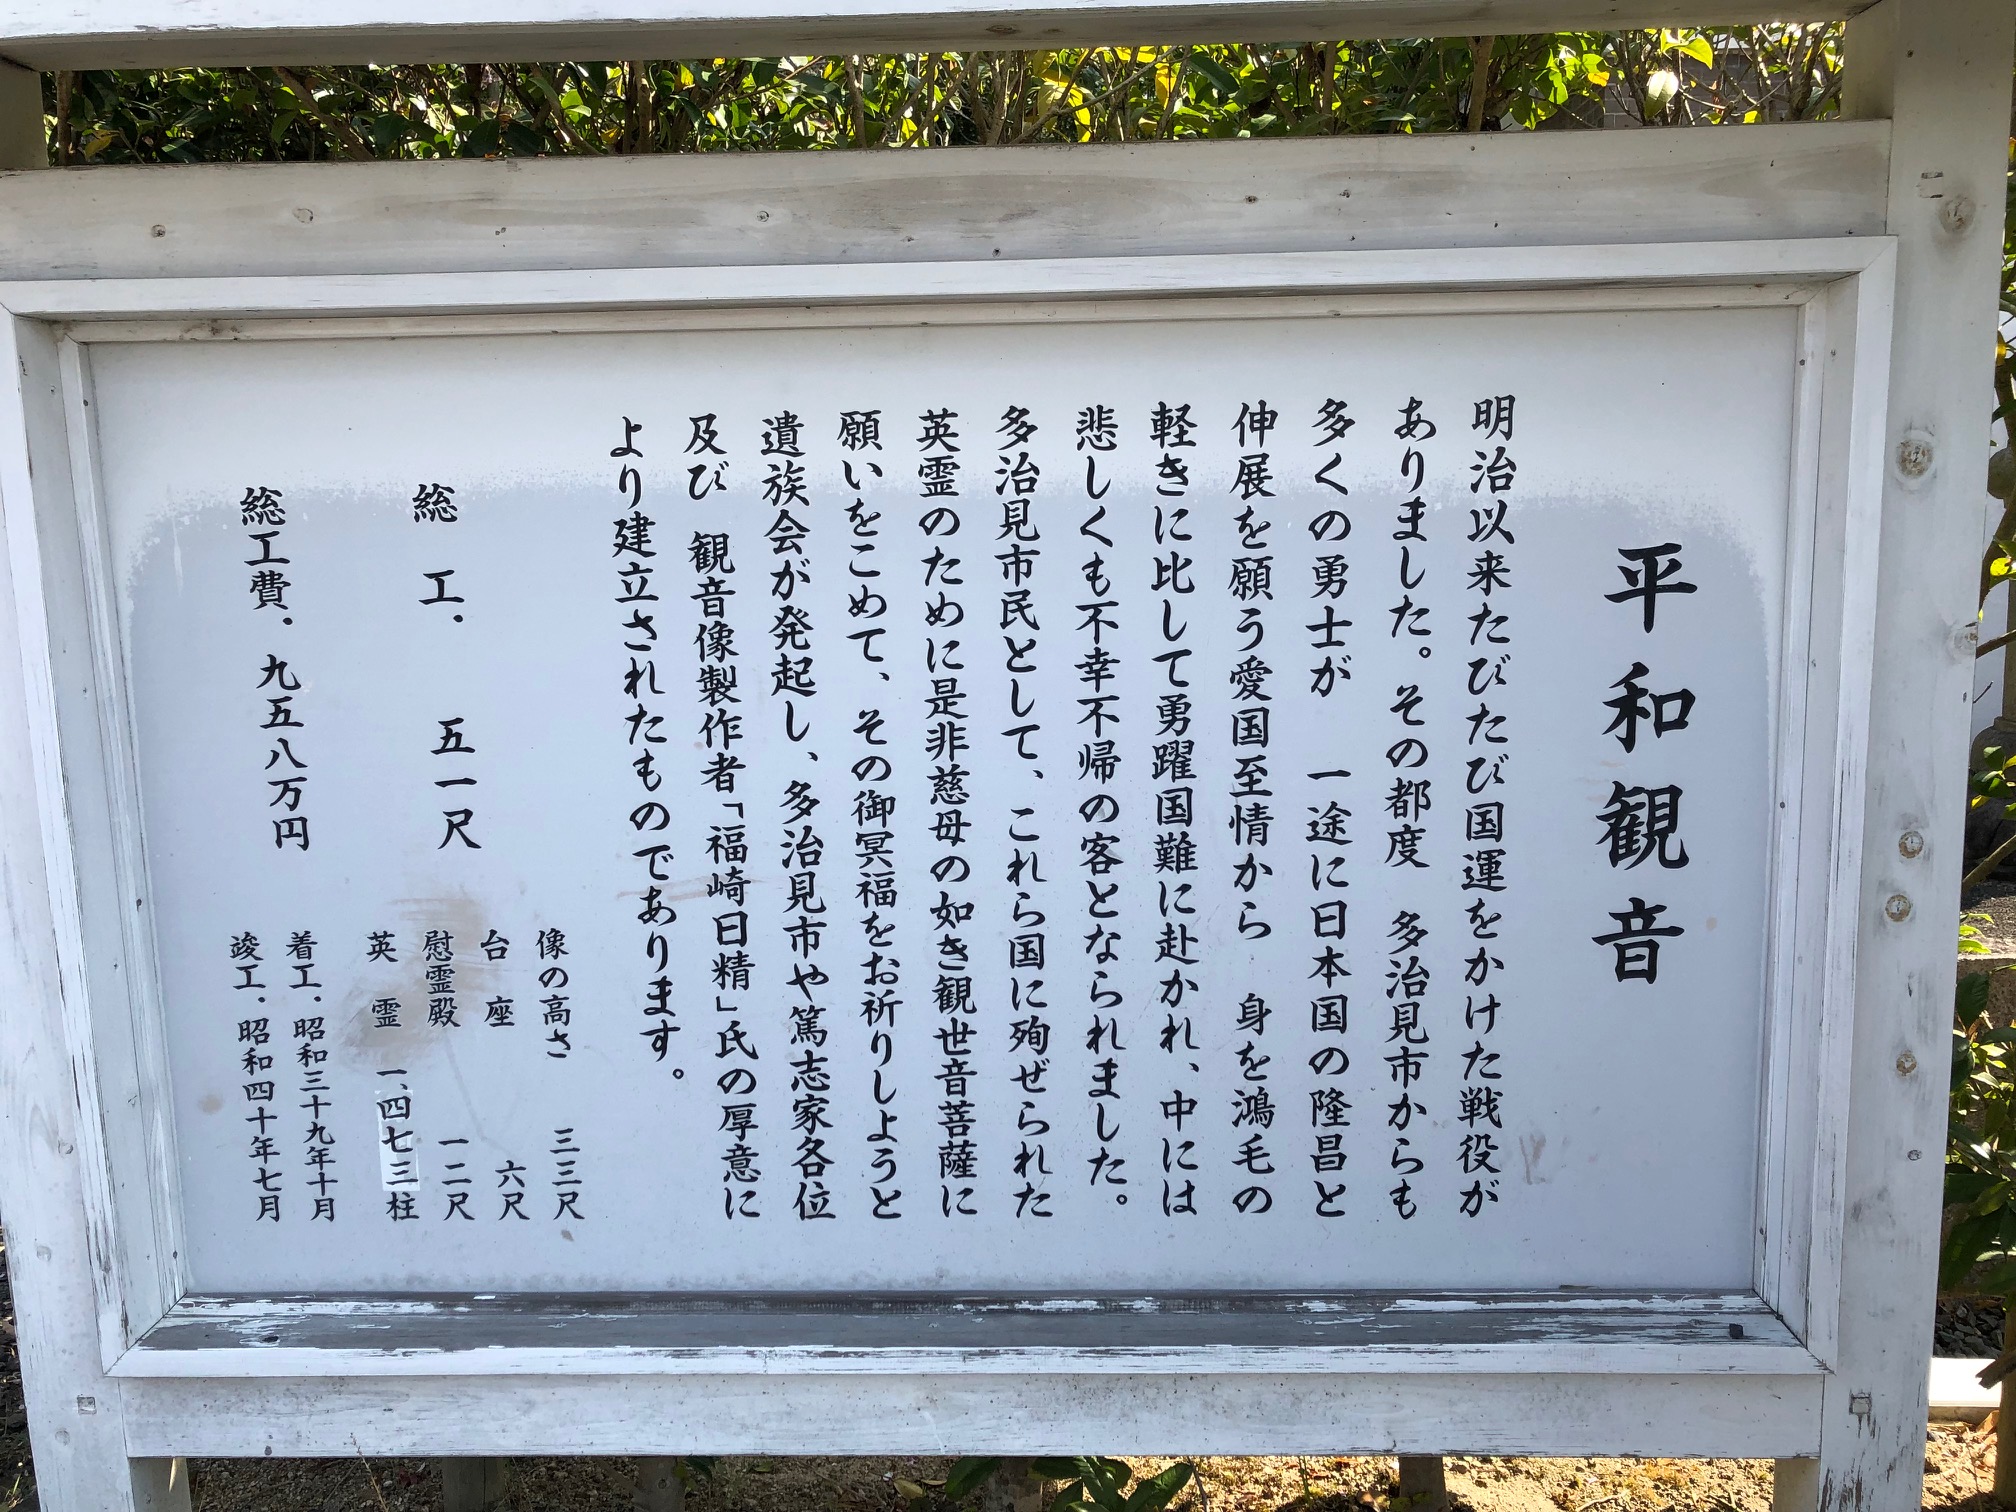 平和観音
明治以来たびたび国運をかけた戦役が
ありました。その都度　多治見市からも
多くの勇士が　一途に日本国の隆昌と
伸展を願う愛国至情から　身を鴻毛の
軽きに比して勇躍国難に赴かれ、中には
悲しくも不幸不帰の客となられました。
多治見市民として、これら国に殉ぜられた
英霊のために是非慈母の如き観世音菩薩に
願いをこめて、その御冥福をお祈りしようと
遺族会が発起し、多治見市や篤志家各位
及び　観音像製作者「福崎日精」氏の厚意に
より建立されたものであります。
総　工．　五一尺
像の高さ　三三尺
台　座　六尺
慰霊殿　一二尺
英　霊　一、四七三柱
総工費．九五八万円
着工．昭和三十九年十月
竣工．昭和四十年七月